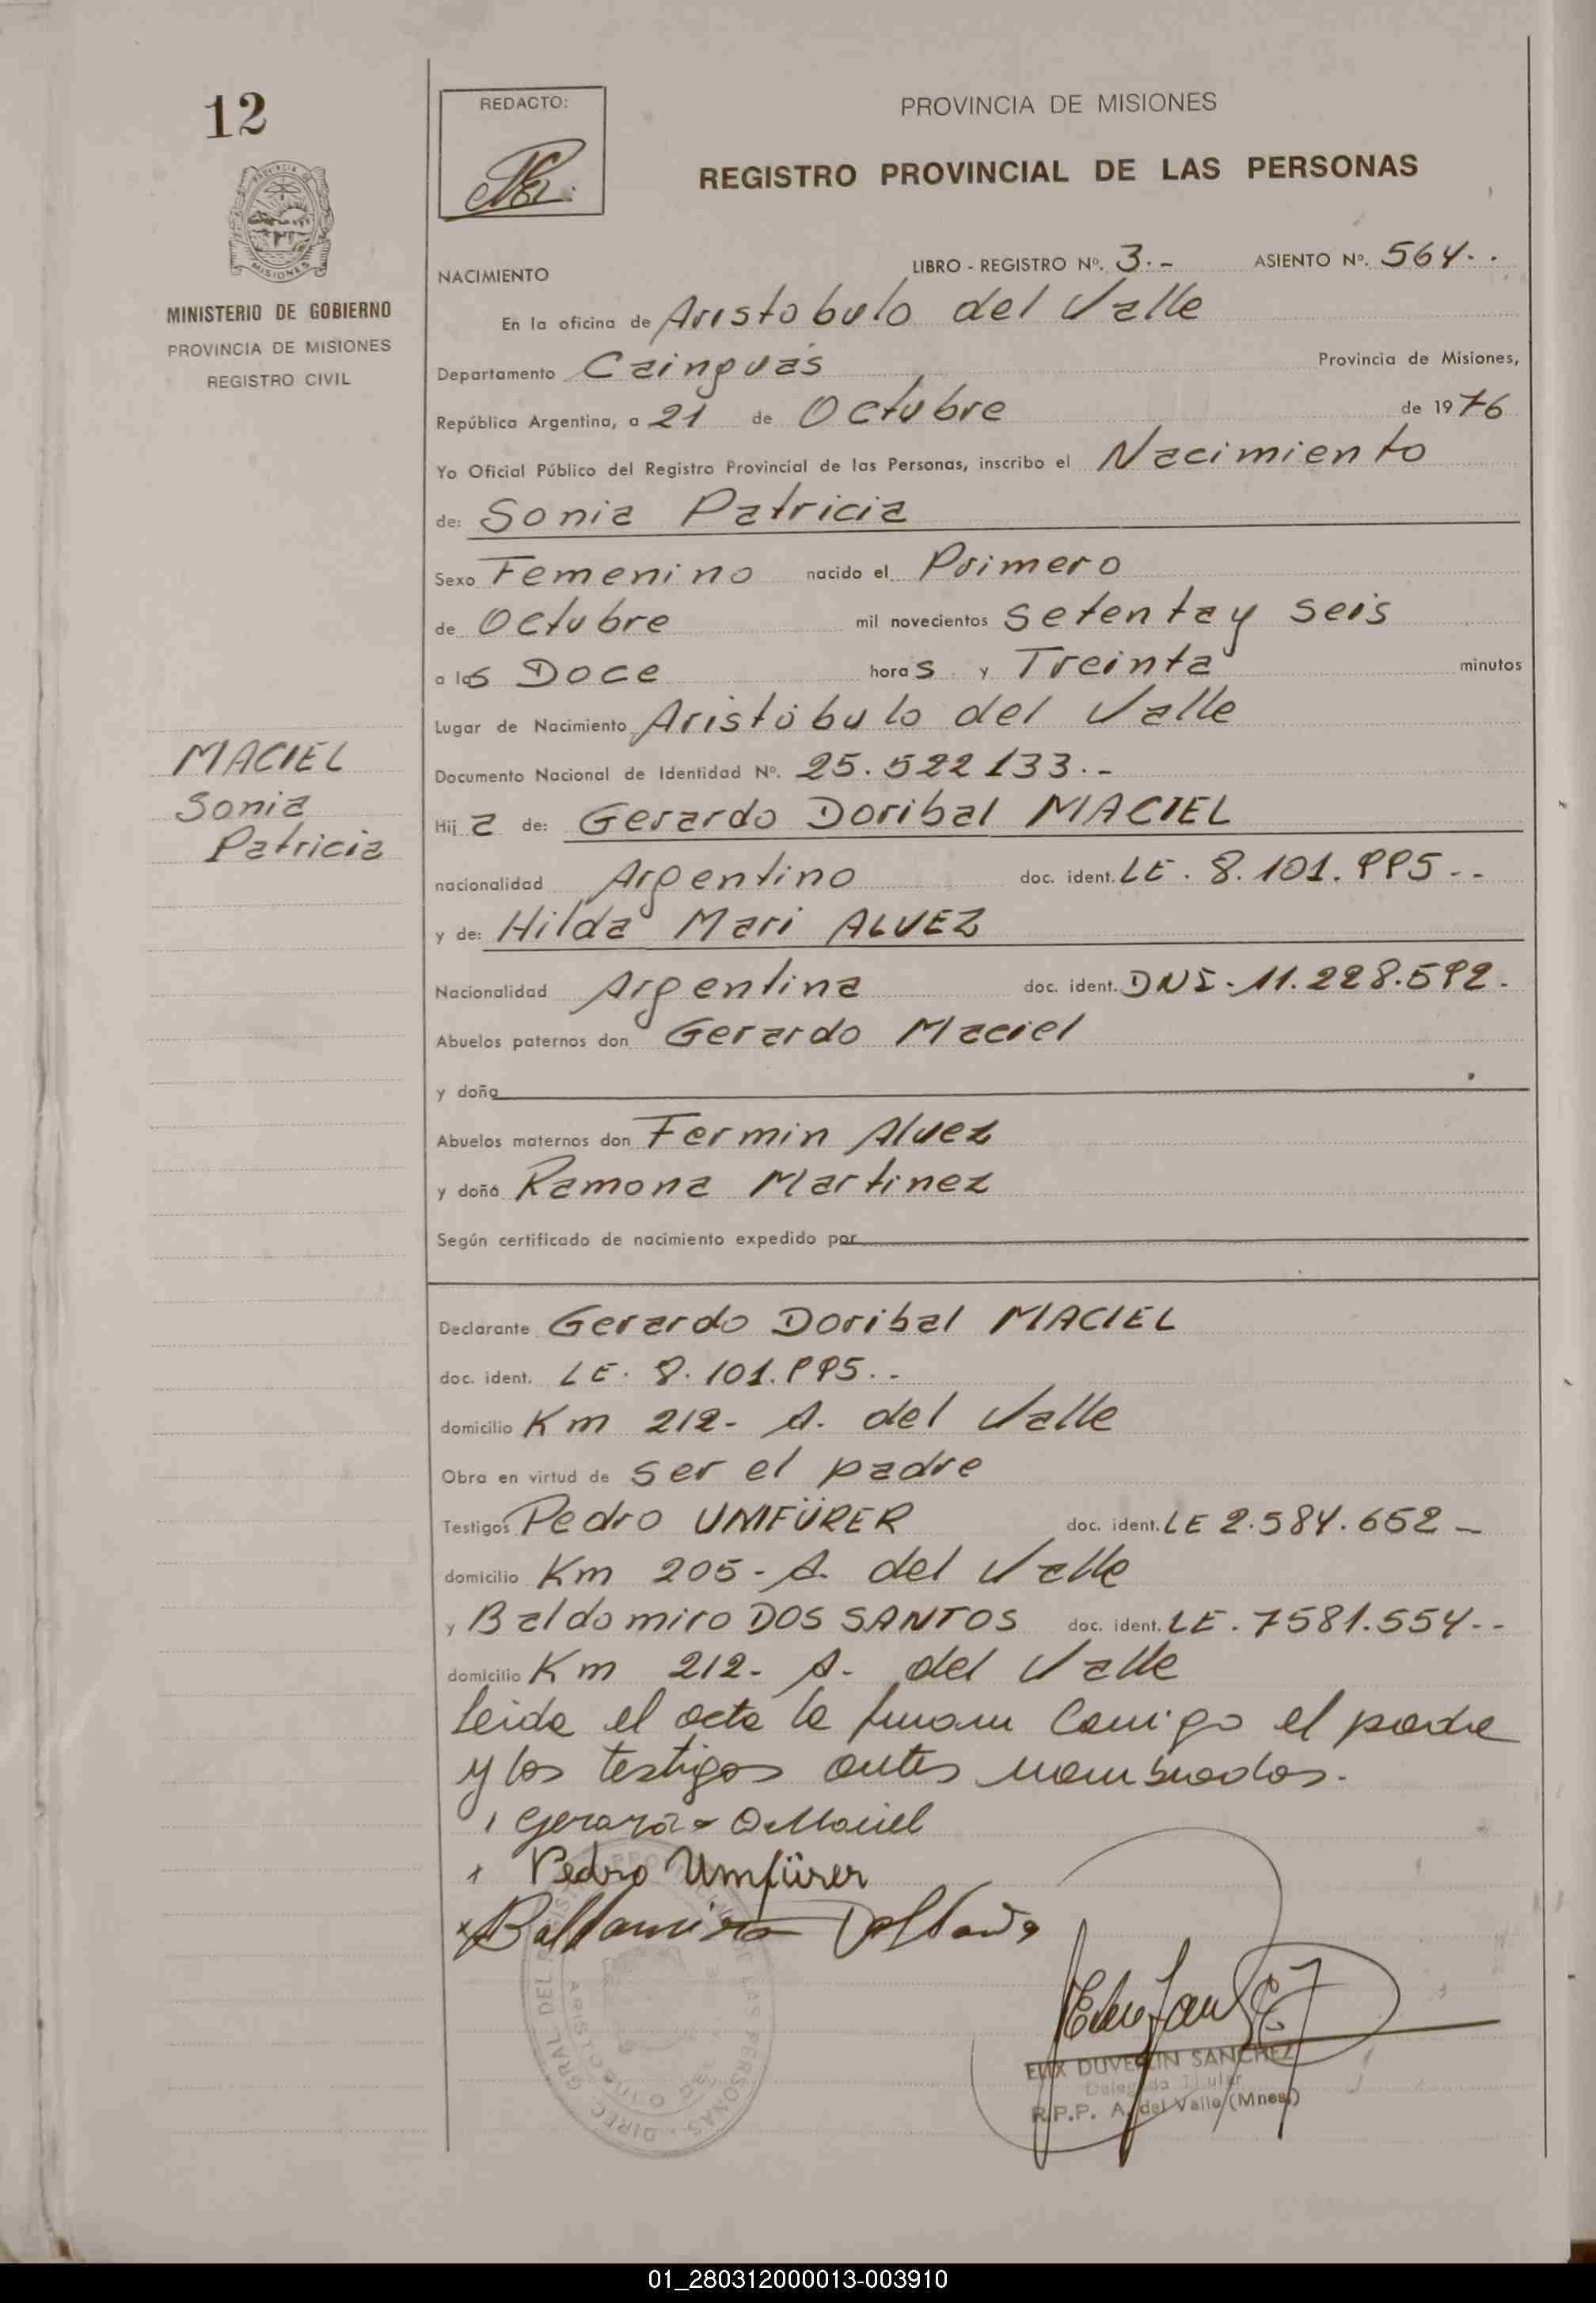 12
REDACTO:
PROVINCIA DE MISIONES
REGISTRO PROVINCIAL DE LAS PERSONAS
PROVINCIA DE
MISIONES
MINISTERIO DE GOBIERNO
PROVINCIA DE MISIONES
REGISTRO CIVIL
NACIMIENTO
LIBRO - REGISTRO Nº. 3.- ASIENTO Nº. 564..
En la oficina de Aristobulo del Valle
Departamento Cainguás Provincia de Misiones,
República Argentina, a 21 de Octubre de 1976
Yo Oficial Público del Registro Provincial de las Personas, inscribo el Nacimiento
de: Sonia Patricia
Sexo Femenino nacido el Primero
de Octubre mil novecientos setenta y seis
a las Doce horas y Treinta minutos
Lugar de Nacimiento Aristóbulo del Valle
MACIEL
Sonia
Patricia
Documento Nacional de Identidad Nº. 25.522133.-
Hija de: Gerardo Doribal MACIEL
nacionalidad Argentino doc. ident. LE. 8.101.995--
y de: Hilda Mari ALVEZ
Nacionalidad Argentina doc. ident. DNI-11.228.592.
Abuelos paternos don Gerardo Maciel
y doña
Abuelos maternos don Fermin Alvez
y doña Ramona Martinez
Según certificado de nacimiento expedido por
Declarante Gerardo Doribal MACIEL
doc. ident. LE. 8.101.995..
domicilio Km 212- A. del Valle
Obra en virtud de ser el padre
Testigos Pedro UMFÜRER doc. ident. LE 2.584.652-
domicilio Km 205- A. del Valle
y Baldomiro DOS SANTOS doc. ident. LE. 7581.554--
domicilio Km 212- A. del Valle
leida el acta la firman conmigo el padre
y los testigos antes nombrados.
Gerardo D Maciel
Pedro Umfürer
DIREC. GRAL DEL REGISTRO PROVINCIAL DE LAS PERSONAS
ELIX DUVERLIN SANCHEZ
Delegada Titular
R.P.P. A. del Valle (Mnes.)
01_280312000013-003910